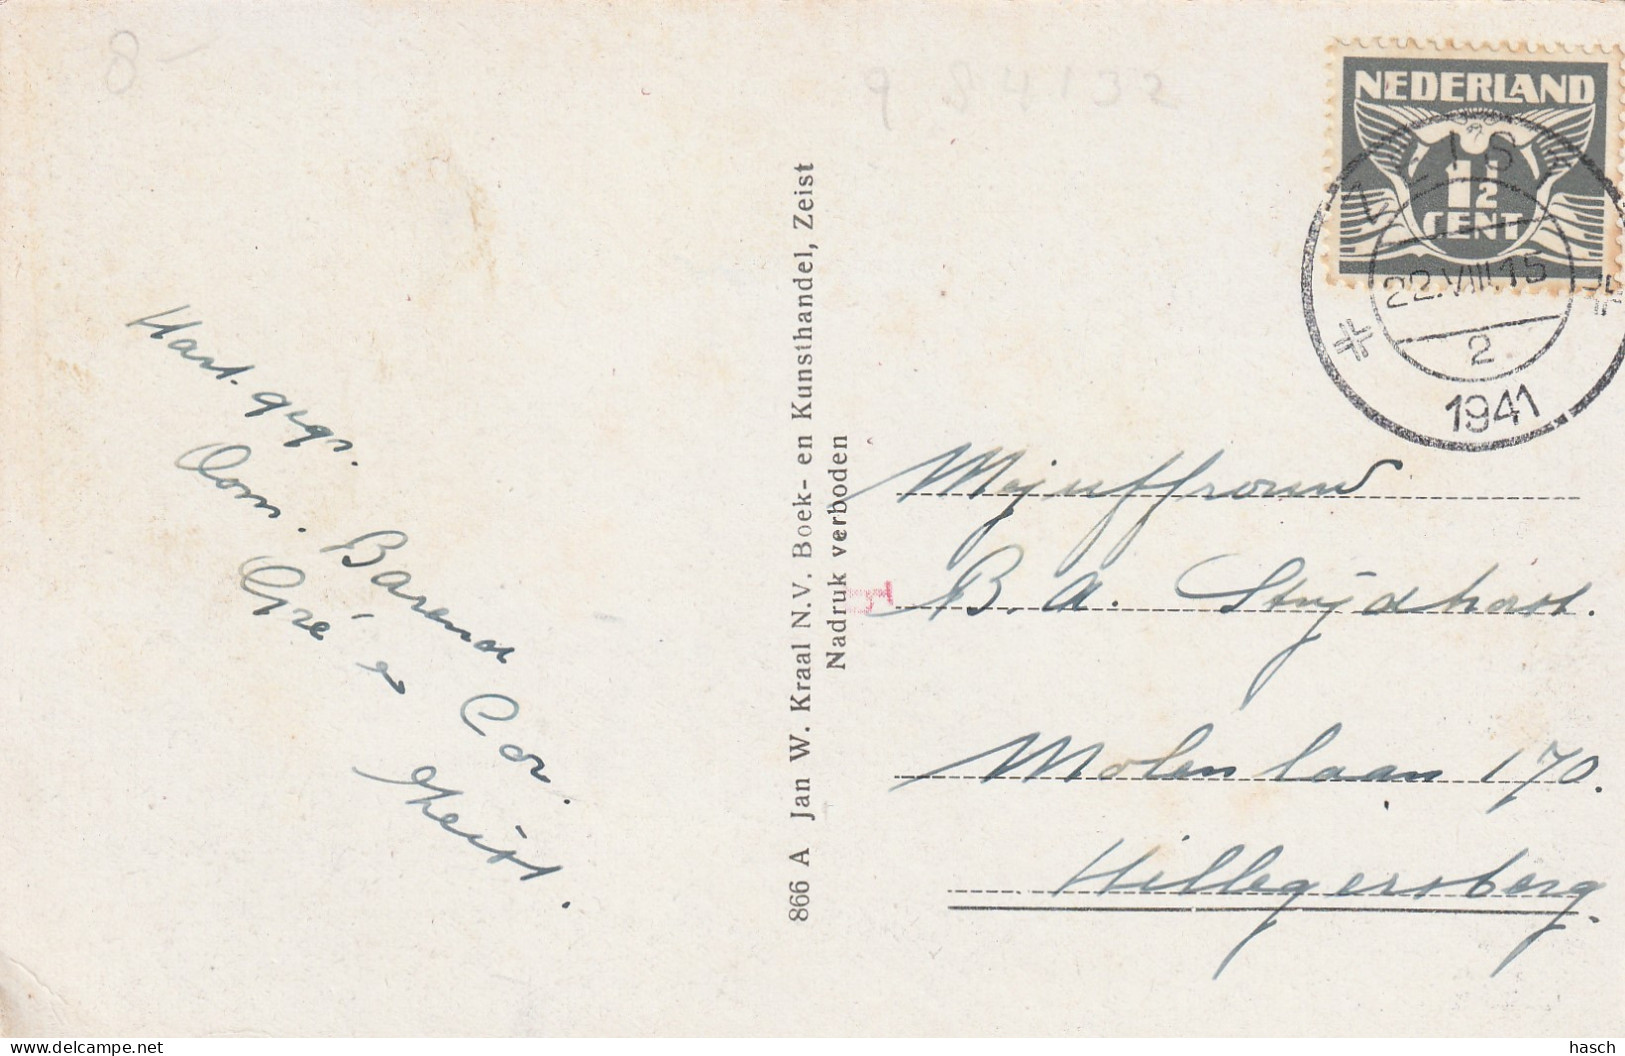 8-
9 84132
NEDERLAND
1 1/2
CENT
ZEIST
22.VIII.15
2
1941
Hart. grgr.
Oom. Barend
Gré en Cor.
Zeist.
866 A Jan W. Kraal N.V. Boek- en Kunsthandel, Zeist
Nadruk verboden
Mejuffrouw
B. A. Strijdhorst.
Molenlaan 170.
Hillegersberg.
www.delcampe.net
hasch